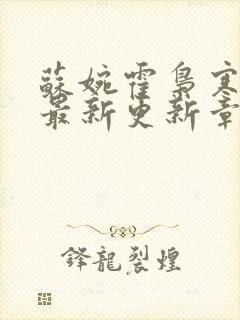 蘇婉霍梟寒
最新更新章
鋒龍裂煌